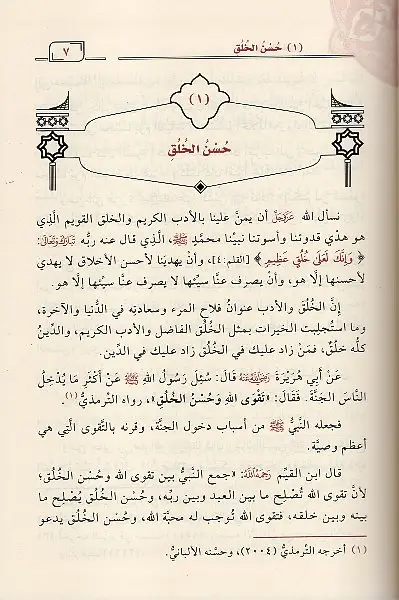 (١) حُسْنُ الخُلُقِ
٧
(١)
حُسْنُ الخُلُقِ
نسأل الله عَزَّوَجَلَّ أن يمنَّ علينا بالأدب الكريم والخلق القويم الَّذِي
هو هدْي قدوتنا وأسوتنا نبيِّنا محمَّدٍ ﷺ، الَّذِي قال عنه ربُّه تَبَارَكَوَتَعَالَى:
﴿ وَإِنَّكَ لَعَلَىٰ خُلُقٍ عَظِيمٍ ﴾ [القلم:٤]، وأن يهديَنا لأحسن الأخلاق لا يهدي
لأحسنها إلَّا هو، وأن يصرف عنَّا سيِّئها لا يصرف عنَّا سيِّئها إلَّا هو.
إنَّ الخُلُقَ والأدب عنوانُ فلاح المرء وسعادتِه في الدُّنيا والآخرة،
وما استُجلِبت الخيرات بمثل الخُلُق الفاضل والأدب الكريم، والدِّينُ
كلُّه خلقٌ، فمَنْ زاد عليك في الخُلُق زاد عليك في الدِّين.
عَنْ أَبِي هُرَيْرَةَ رَضِيَاللَّهُعَنْهُ قَالَ: سُئِلَ رَسُولُ اللهِ ﷺ عَنْ أَكْثَرِ مَا يُدْخِلُ
النَّاسَ الجَنَّةَ. فَقَالَ: «تَقْوَى اللهِ وَحُسْنُ الخُلُقِ»، رواه التِّرمذيُّ(١).
فجعله النَّبيُّ ﷺ من أسباب دخول الجنَّة، وقرنه بالتَّقوى الَّتي هي
أعظم وصيَّة.
قال ابن القيِّم رَحِمَهُ اللَّهُ: «جمع النَّبيُّ بين تقوى الله وحُسْن الخُلُق؛
لأنَّ تقوى الله تُصْلِح ما بين العبد وبين ربِّه، وحُسْن الخُلُق يُصْلِح ما
بينه وبين خلقه، فتقوى الله تُوجب له محبَّة الله، وحُسْن الخُلُق يدعو
(١) أخرجه التِّرمذيُّ (٢٠٠٤)، وحسَّنه الألبانيُّ.